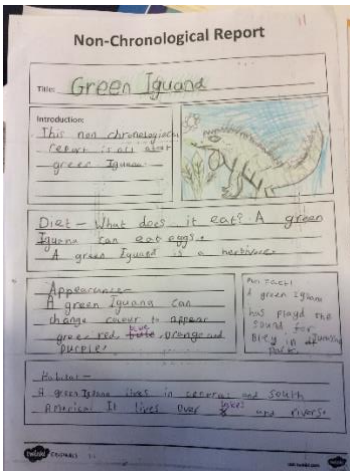 Non-Chronological Report
Title: Green Iguana
Introduction:
This non chronological
report is all about
green Iguana.
Diet - What does it eat? A green
Iguana can eat eggs.
A green Iguana is a herbivore.
Appearance -
A green Iguana can
change colour to appear
green, red, blue, orange and
purple.
Fun Fact!
A green Iguana
has playd the
sound for
in Jurassic
park.
Habitat -
A green Iguana lives in central and south
America. It lives over lakes and rivers.
twinkl